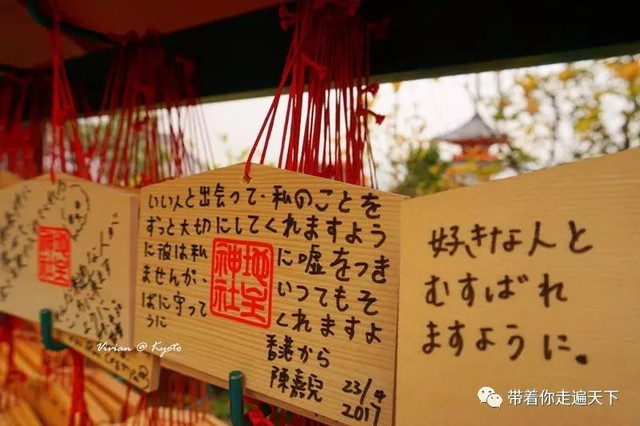 いい人と出会って、私のことを
ずっと大切にしてくれますよう
に彼は私に嘘をつき
ませんが、いつでもそ
ばに守ってくれますよ
うに
地主
神社
香港から
陳嘉
23/4
2017
好きな人と
むすばれ
ますように。
Vivian @ Kyoto
带着你走遍天下